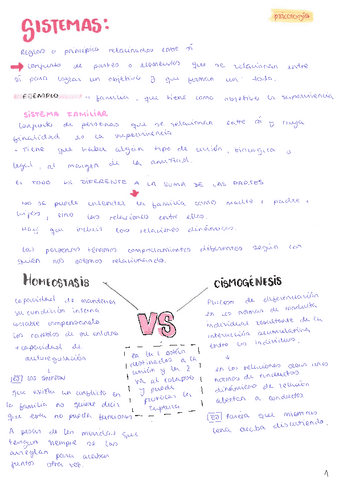 psicología
SISTEMAS:
Reglas o principios relacionados entre sí
→ conjunto de partes o elementos que se relacionan entre
sí para lograr un objetivo y que forman un todo.
EJEMPLO → familia, que tiene como objetivo la supervivencia
SISTEMA FAMILIAR
Conjunto de personas que se relacionan entre sí y cuya
finalidad es la supervivencia
- Tiene que haber algún tipo de unión, biológica o
legal, al margen de la amistad.
El TODO ES DIFERENTE A LA SUMA DE LAS PARTES
No se puede entender la familia como madre, padre,
hijos, sino las relaciones entre ellos.
Hay que incluir las relaciones dinámicas.
Las personas tenemos comportamientos diferentes según con
quién nos estamos relacionando.
HOMEOSTASIS
VS
CISMOGÉNESIS
capacidad de mantener
su condición interna
estable compensando
los cambios de su entorno
→ capacidad de
autorregulación
EJ los Simpson
que exista un conflicto en
la familia no quiere decir
que esta no pueda funcionar
A pesar de los que
tengan siempre se las
arreglan para acabar
juntos otra vez.
En la 1 están
destinados a la
unión y en la 2
va al colapso
y puede
la
ruptura
Proceso de diferenciación
en las normas de conducta
individual resultante de la
interacción acumulativa
entre los individuos.
en las relaciones crean unas
normas de conductas
dinámicas de relación
afectan a conducta
EJ Pareja que
cena acaba discutiendo.
1